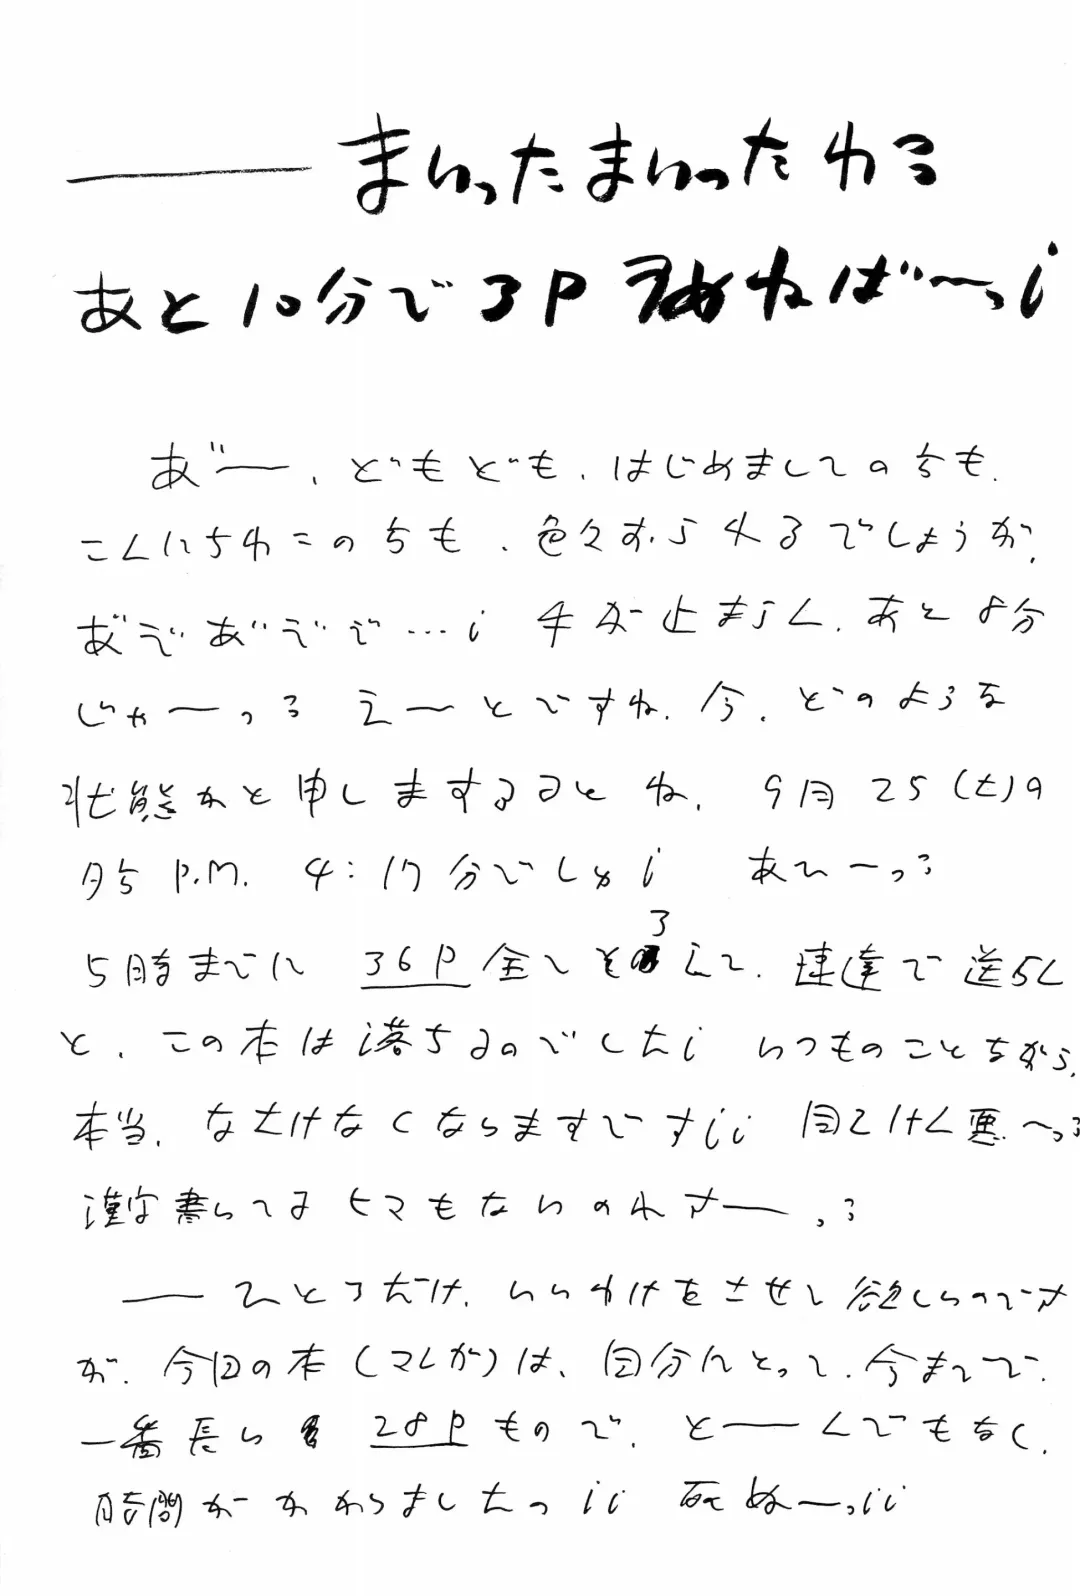 ── まいったまいったわう
あと10分で3P 埋めねば〜っ!
あ゛──、どもども、はじめましてのちも、
こんにちわこのちも、色々おられるでしょうが、
あ゛で゛あ゛で゛で…! 手が止まらん、あと8分
じゃーっう えーとですね、今、どのような
状態かと申しまするとね、9月25(土)の
時P.M. 4:17分でしゅ! あひーっう
5時までに 36P全てそろえて、速達で送らん
と、この本は落ちるのでした! いつものことちがら、
本当、なさけなくなりますです!! 自こけん悪〜っう
漢字書いてるヒマもないのれすーっう
── ひとつだけ、いいわけをさせて欲しいのです
が、今回の本(マンガ)は、自分にとって、今までで、
一番長い 28Pもので、とーーんでもなく、
時間がかかりましたっ!! 死ぬーっ!!